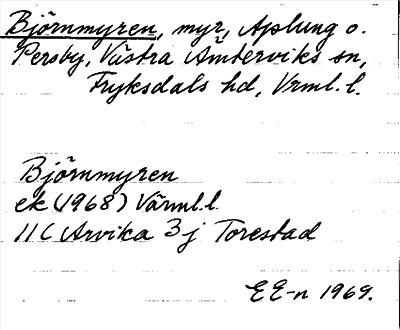 Björnmyren, myr, Aplung o.
Persby, Västra Ämterviks sn,
Fryksdals hd, Vrml. l.
Björnmyren
ek (1968) Värml.l.
11C Arvika 3j Torestad
EE-n 1969.